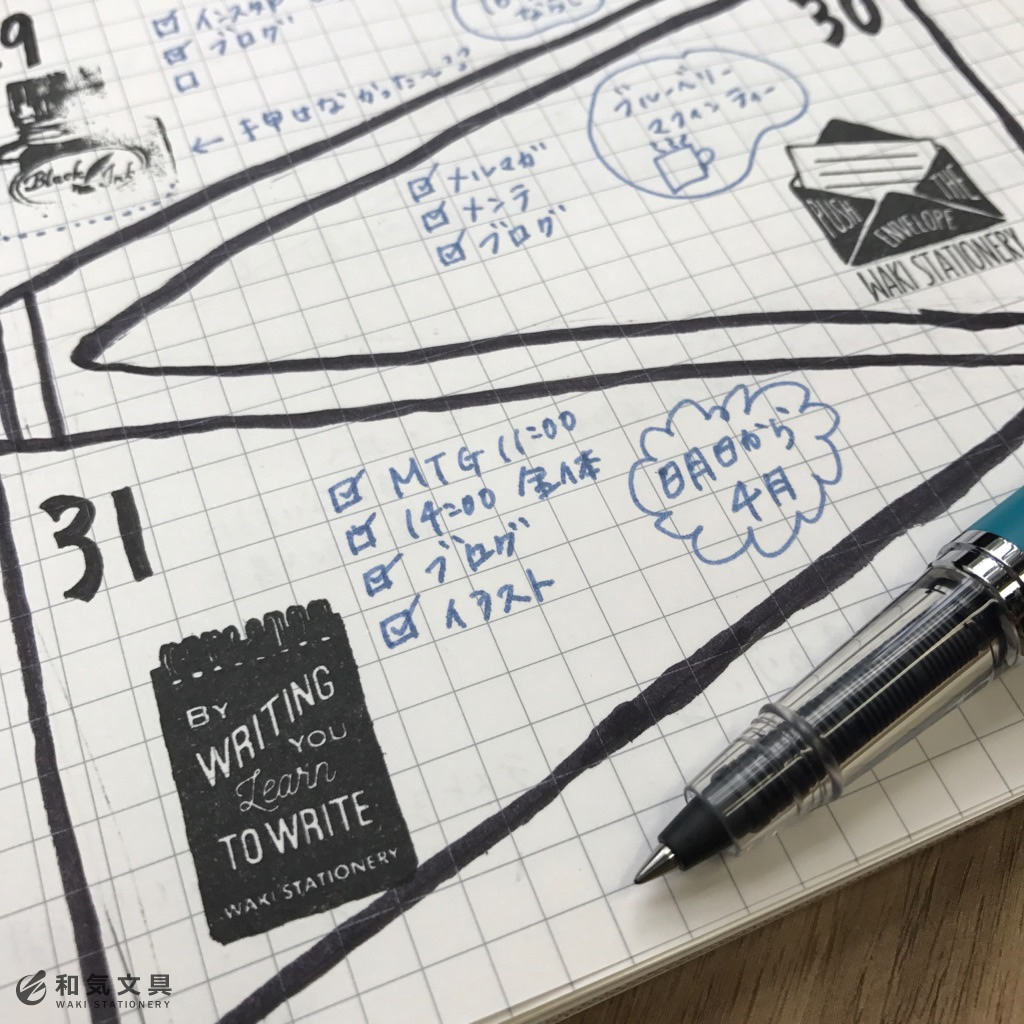 インスタ
ブログ
Black Ink
30
ブルーベリー
マフィンティー
メルマガ
メンテ
ブログ
PUSH
THE
ENVELOPE
WAKI STATIONERY
31
MTG 11:00
14:00
ブログ
イラスト
明日から
4月
BY
WRITING
YOU
Learn
TO WRITE
WAKI STATIONERY
和気文具
WAKI STATIONERY